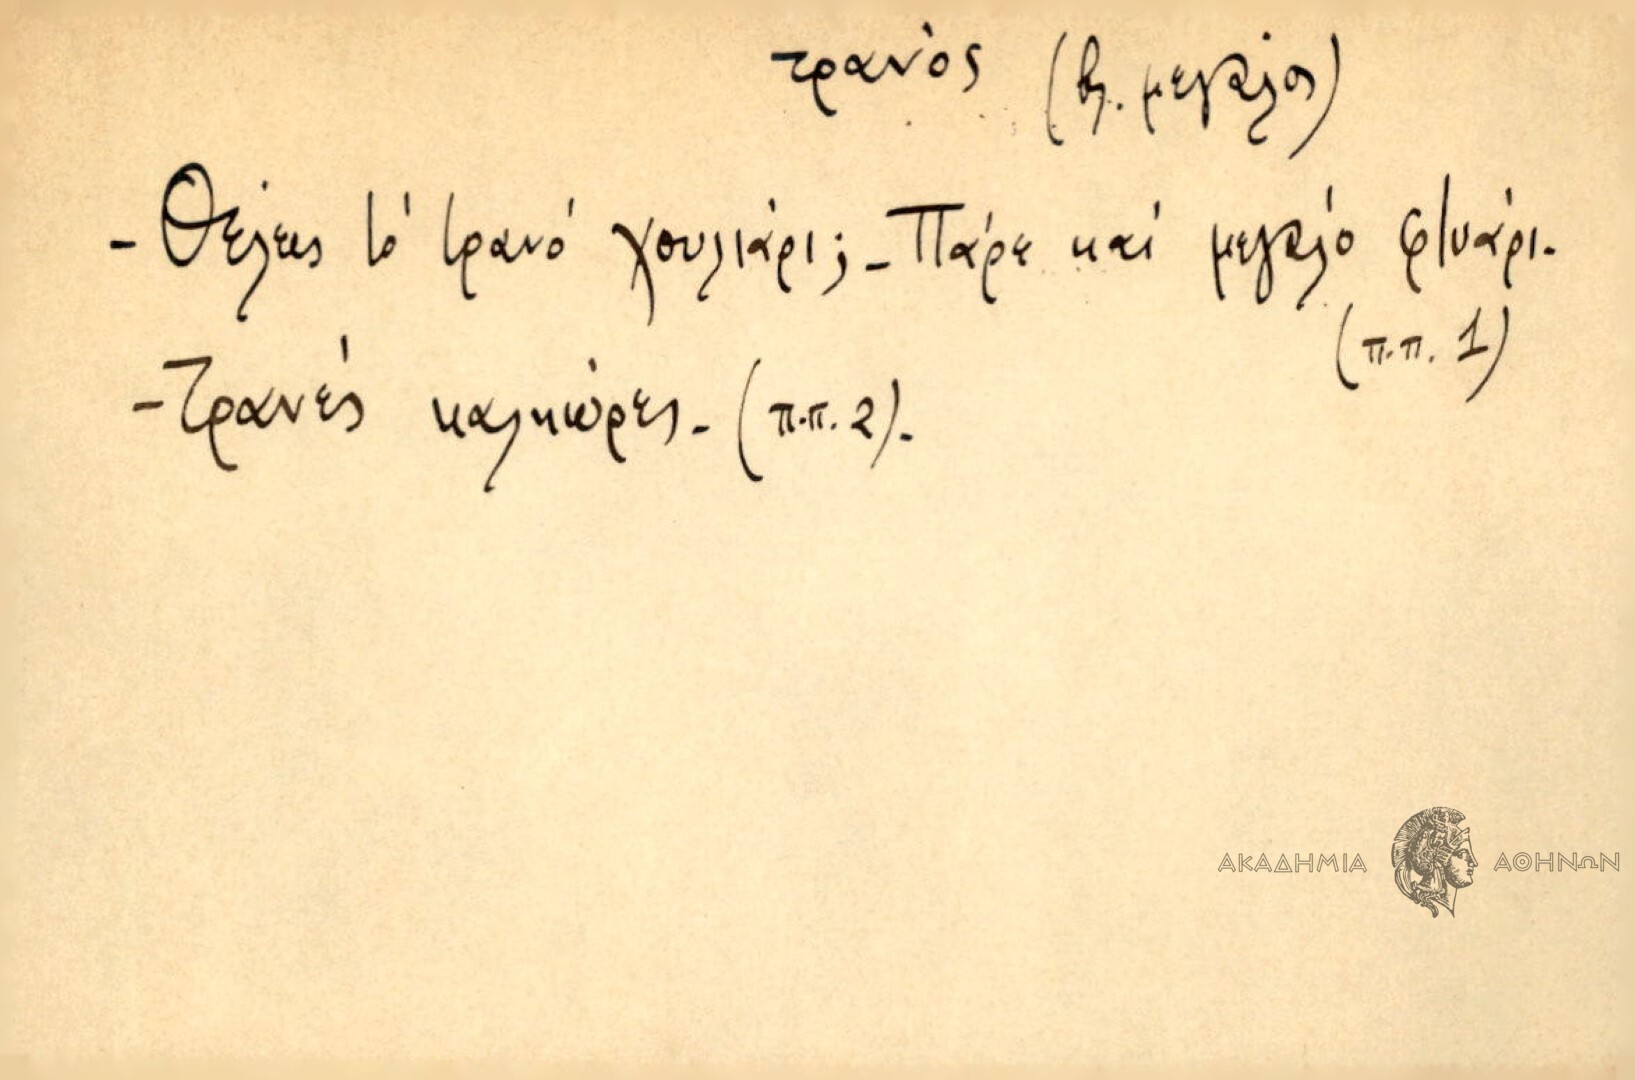 τρανός (βλ. μεγάλος)
- Θέλεις τό τρανό χουλιάρι; - Πάρε καί μεγάλο φτυάρι.
(π.π. 1)
- Τρανές καλκιώρες. (π.π. 2).
ΑΚΑΔΗΜΙΑ ΑΘΗΝΩΝ